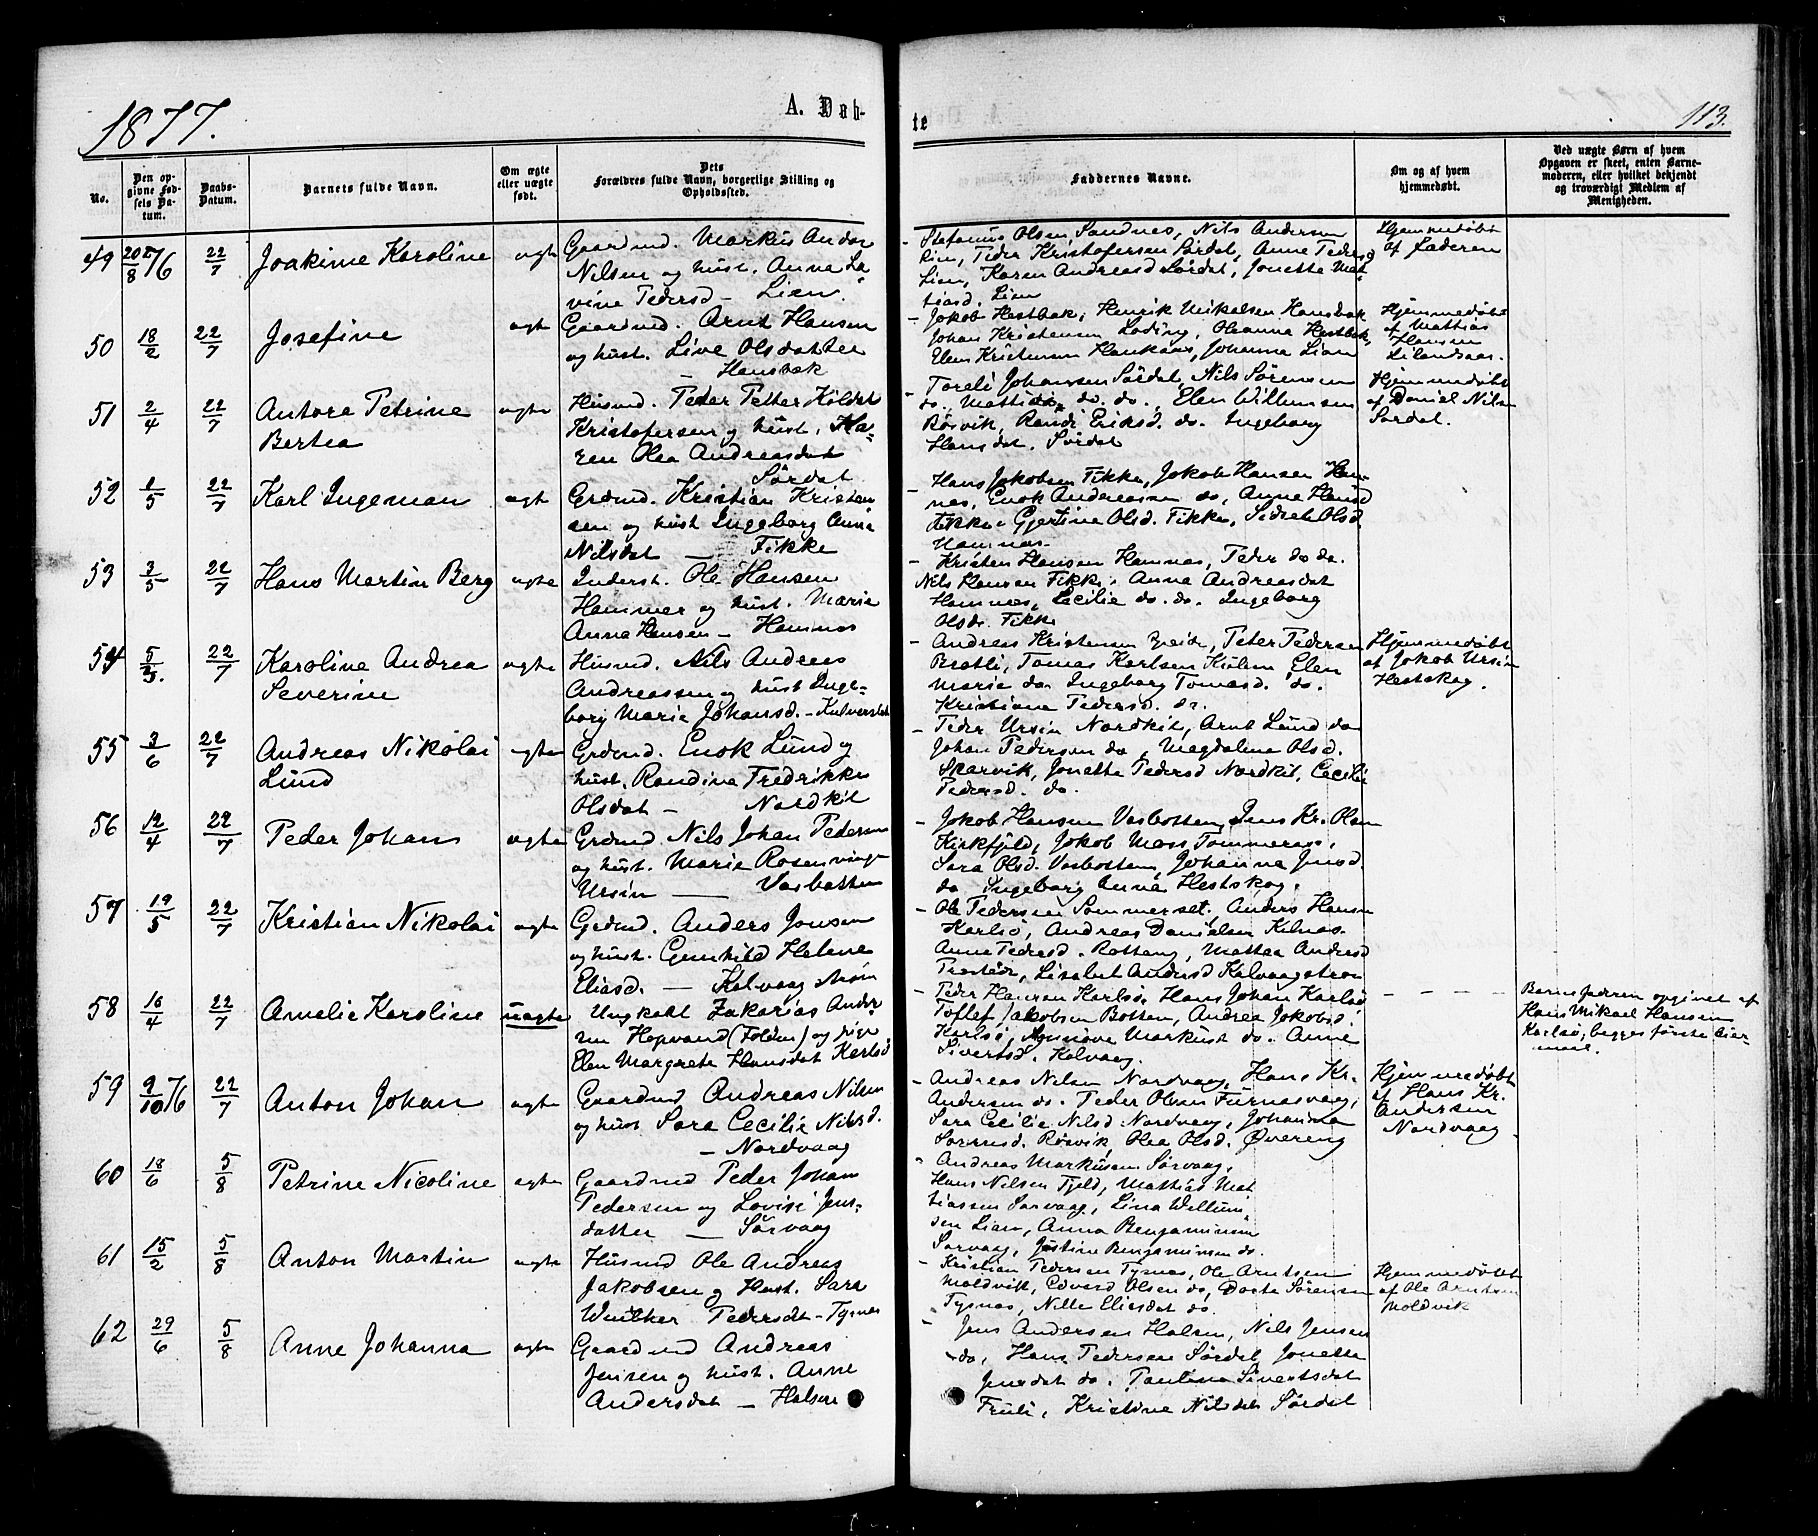 1877.
A. Døb-
te
113.
No.
Den op-
givne Fød-
sels Da-
tum.
Daabs-
Datum.
Barnets fulde Navn.
Om ægte
eller uægte
født.
Dets
Forældres fulde Navn, borgerlige Stilling og
Opholdssted.
Faddernes Navne.
Om og af hvem
hjemmedøbt.
Ved uægte Børn af hvem
Opgaven er skeet, enten Barne-
moderen, eller hvilket bekjendt
og troværdigt Medlem af
Menigheden.
49 20/8 76 22/7 Joakime Karoline ægte
Gaardmd. Markus Andor
Nilsen og hust. Anna La-
vine Pedersd - Lien.
- Stefanus Olsen Sandnes, Nils Andersen
Lien, Peder Kristofersen Sørdal, Anne Pedersd
Lien, Karen Andreasd Sørdal, Jonette Mat-
tiasd. Lien
Hjemmedøbt
af Faderen
50 18/2 22/7 Josefine ægte
Gaardmd. Arnt Hansen
og hust. Live Olsdatter
- Hansbak
- Jakob Hestbak, Henrik Mikalsen Hansbak
Johan Kristensen Loding, Oleanna Hestbak,
Elen Kristensen, Johanna Lien
Hjemmedøbt
af Mattias
Hansen
51 2/4 22/7 Antora Petrine ægte
Bertea
Husmd. Peder Petter Holder
Kristofersen og hust. Ka-
ren Olea Andreasdat
Sørdal
- Toreli Johansen Sørdal, Nils Sørensen
do, Mattias do. do., Elen Willumsen
Røsvik, Randi Eriksd. do. Ingeborg
Hansdat. Sørdal
Hjemmedøbt
af Daniel Nils.
Sørdal.
52 1/5 22/7 Karl Ingeman ægte
Grdmd. Kristian Kristen
sen og hust Ingeborg Anna
Nilsdat - Fikke
- Hans Jakobsen Fikke, Jakob Hansen Ham-
nes, Enok Andreassen do, Anne Hansd
Fikke Gjertine Olsd. Fikke, Olsd
Hamnes
53 3/5 22/7 Hans Martin Berg ægte
Inderst. Ole Hansen
Hammer og hust. Marie
Anna Hansen - Hamnes
- Kristen Hansen Hamnes, Peder do do.
Nils Hansen Fikke, Anna Andreasdat
Hamnes, Cecilie do. do. Ingeborg
Olsd. Fikke
54 5/3. 22/7 Karoline Andrea ægte
Severine
Husmd. Nils Andreas
Andreassen og hust Inge-
borg Marie Johansd. -
- Andreas Kristensen, Peter Pedersen
Bratli, Tomas Karlsen, Elen
Marie do Ingeborg Tomasd. do.
Kristiana Pedersd. do.
Hjemmedøbt
af Jakob Ursin
Hestskog.
55 3/6 22/7 Andreas Nikolai ægte
Lund
Grdmd. Enok Lund og
hust. Randina Fredrikke
Olsdat - Nordkil
- Peder Ursin Nordkil, Arnt Lund do
Johan Pedersen do, Magdalena Olsd.
Skarvik, Jonette Pedersd Nordkil, Cecilie
Pedersd. do.
56 12/4 22/7 Peder Johan ægte
Grdmd Nils Johan Pedersen
og hust. Marie Rosenvinge
Ursin - Vasbotten
- Jakob Hansen Vasbotten, Jens Kr. Olsen
Kirkfjeld, Jakob Moss Tommeraas,
Sara Olsd. Vasbotten, Johanna Jensd.
do Ingeborg Anna Hestskog.
57 19/5 22/7 Kristian Nikolai ægte
Grdmd. Anders Jonsen
og hust. Gunhild Helene
Eliasd. - Kalvaag
- Ole Pedersen Sommerset, Anders Hansen
Karlsø, Andreas Danielsen Kilnes.
Anne Pedersd. Rottang, Mattea Andersd
Lisabet Andersd Kalvaagstran
58 16/4 22/7 Amelie Karoline uægte
Ungkahl Zakarias Ander
sen Hopvand (Folden) og pige
Elen Margrete Hansdat Karlsø
- Peder Hansen Karlsø, Hans Johan Karlsø
Toflef Jakobsen Botten, Andrea Jakobsd.
Karlsø, Markusd do. Anne
Sivertsd. Kalvaag.
Barnefaderen opgivet af
Hans Mikael Hansen
Karlsø, begges første Leier-
maal.
59 9/10 76 22/7 Anton Johan ægte
Gaardmd Andreas Nilsen
og hust Sara Cecilie Nilsd.
- Nordvaag
- Andreas Nilsen Nordvaag, Hans Kr.
Andersen do. Peder Olsen Furnesvaag,
Sara Cecilie Nilsd. Nordvaag, Johanna
Sørensd. Røsvik, Olea Olsd. Øvereng
Hjemmedøbt
af Hans Kr.
Andersen
Nordvaag
60 18/6 5/8 Petrine Nicoline ægte
Gaardmd Peder Johan
Pedersen og Lovise Jens-
datter - Sørvaag
- Andreas Markusen Sørvaag,
Hans Nilsen Fjeld, Mattias Mat
tiassen Sørvaag, Lina Willum-
sen Lien, Anna Benjaminsen
Sørvaag, Justine Benjaminsen do.
61 15/2 5/8 Anton Martin ægte
Husmd Ole Andreas
Jakobsen og Hust. Sara
Pedersdt - Tysnes
- Kristian Pedersen Tysnes, Ole Arntsen
Moldvik, Edvard Olsen do, Dorte Sørensen
Tysnes, Nille Eliasdat do.
Hjemmedøbt
af Ole Arntsen
Moldvik
62 29/6 5/8 Anne Johanna ægte
Gaardmd Andreas
Jensen og hust. Anne
Andersdat - Halsen
- Jens Andersen Halsen, Nils Jensen
do, Hans Pedersen Sørdal, Jonetta
Jensdat do. Paulina Sivertsdat
Fruli, Kristine Nilsdat Sørdal